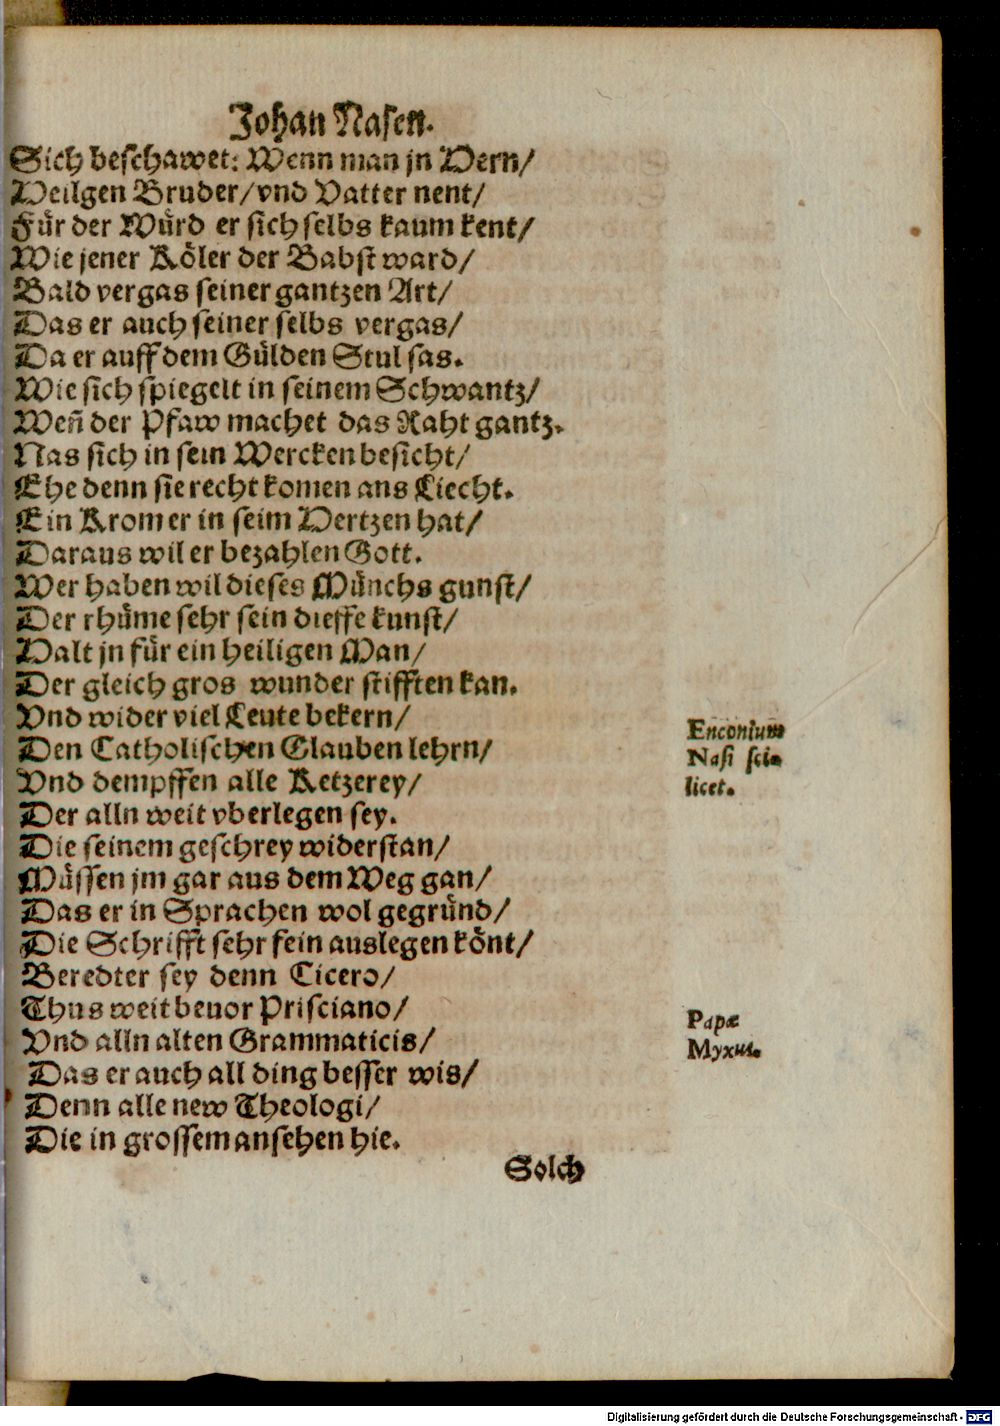 Johan Nasen.
Sich beschawet: Wenn man jn Hern/
Heilgen Bruder/ vnd Vatter nent/
Für der Würd er sich selbs kaum kent/
Wie jener Köler der Babst ward/
Bald vergas seiner gantzen Art/
Das er auch seiner selbs vergas/
Da er auff dem Gülden Stul sas.
Wie sich spiegelt in seinem Schwantz/
Weñ der Pfaw machet das Raht gantz.
Nas sich in sein Wercken besicht/
Ehe denn sie recht komen ans Liecht.
Ein Krom er in seim Hertzen hat/
Daraus wil er bezahlen Gott.
Wer haben wil dieses Münchs gunst/
Der rhüme sehr sein dieffe kunst/
Halt jn für ein heiligen Man/
Der gleich gros wunder stifften kan.
Vnd wider viel Leute bekern/
Den Catholischen Glauben lehrn/
Vnd dempffen alle Ketzerey/
Der alln weit vberlegen sey.
Die seinem geschrey widerstan/
Müssen jm gar aus dem Weg gan/
Das er in Sprachen wol gegründ/
Die Schrifft sehr fein auslegen könt/
Beredter sey denn Cicero/
Thus weit beuor Prisciano/
Vnd alln alten Grammaticis/
Das er auch all ding besser wis/
Denn alle new Theologi/
Die in grossem ansehen hie.
Solch
Enconium
Nasi sci-
licet.
Papæ
Myxus.
Digitalisierung gefördert durch die Deutsche Forschungsgemeinschaft - DFG